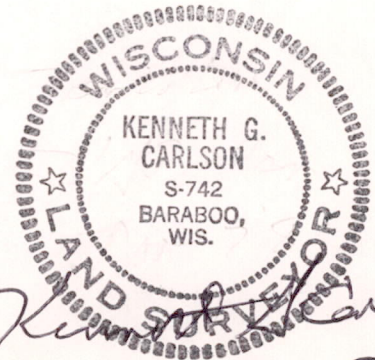 WISCONSIN
KENNETH G.
CARLSON
S-742
BARABOO,
WIS.
LAND SURVEYOR